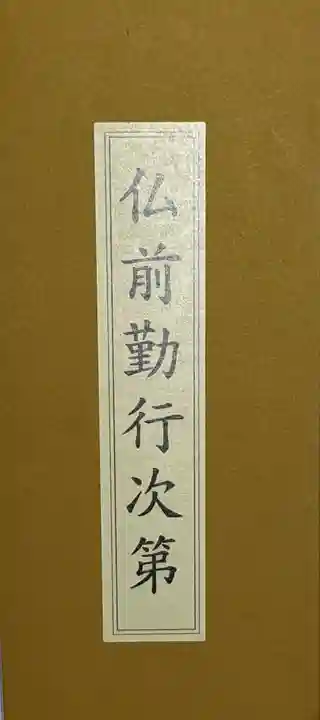 仏前勤行次第